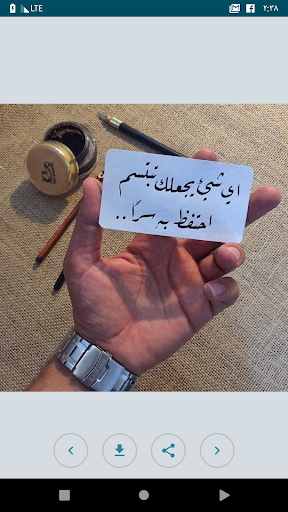 LTE ٢:٢٨
اي شئ يجعلك تبتسم
احتفظ به سرًا ..